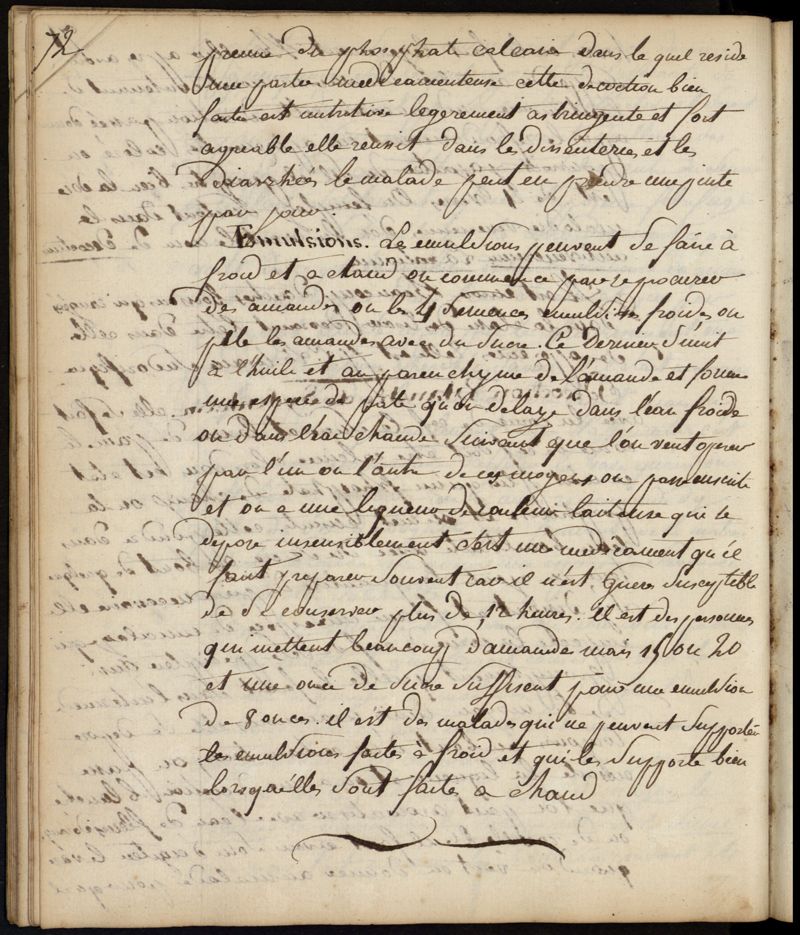 72
prenne du phosphate calcaire dans le quel reside
une partie medicamenteuse cette decoction bien
faite est nutritive legerement astringente et fort
agreable elle reussit dans les dissenteries et les
Diarrhées le malade peut en prendre une pinte
par jour.
Emulsions. Les emulsions peuvent se faire à
froid et a chaud on commence par se procurer
des amandes ou les 4 semences emulsives froides on
pile les amandes avec du sucre. Ce dernier s'unit
à l'huile et au parenchyme de l'amande et forme
une espece de pate qu'on delaye dans l'eau froide
ou dans l'eau chaude suivant que l'on veut operer
par l'un ou l'autre de ces moyens on passe ensuite
et on a une liqueur de couleur laiteuse qui se
depose insensiblement c'est un medicament qu'il
faut preparer souvent car il n'est guere susceptible
de se conserver plus de 12 heures. il est des personnes
qui mettent beaucoup d'amande mais 15 ou 20
et une once de sucre suffisent pour une emulsion
de 8 onces. il est des malades qui ne peuvent supporter
les emulsions faites à froid et qui les supporte bien
lorsqu'elles sont faites a chaud